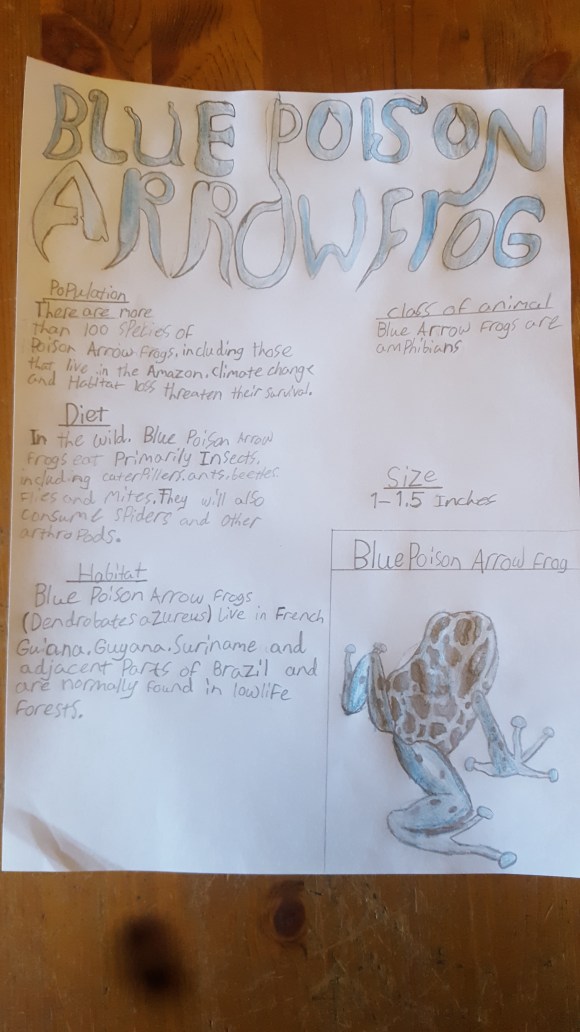 BLUE POISON
ARROW FROG
Population
There are more
than 100 species of
Poison Arrow Frogs, including those
that live in the Amazon. climate change
and Habitat loss threaten their survival.
Diet
In the wild. Blue Poison Arrow
Frogs eat Primarily Insects.
including caterpillers. ants. beetles.
Flies and Mites. They will also
consume spiders and other
arthropods.
Habitat
Blue Poison Arrow Frogs
(Dendrobates azureus) live in French
Guiana. Guyana. Suriname and
adjacent Parts of Brazil and
are normally found in lowlife
Forests.
class of animal
Blue Arrow Frogs are
amphibians
Size
1-1.5 Inches
Blue Poison Arrow Frog